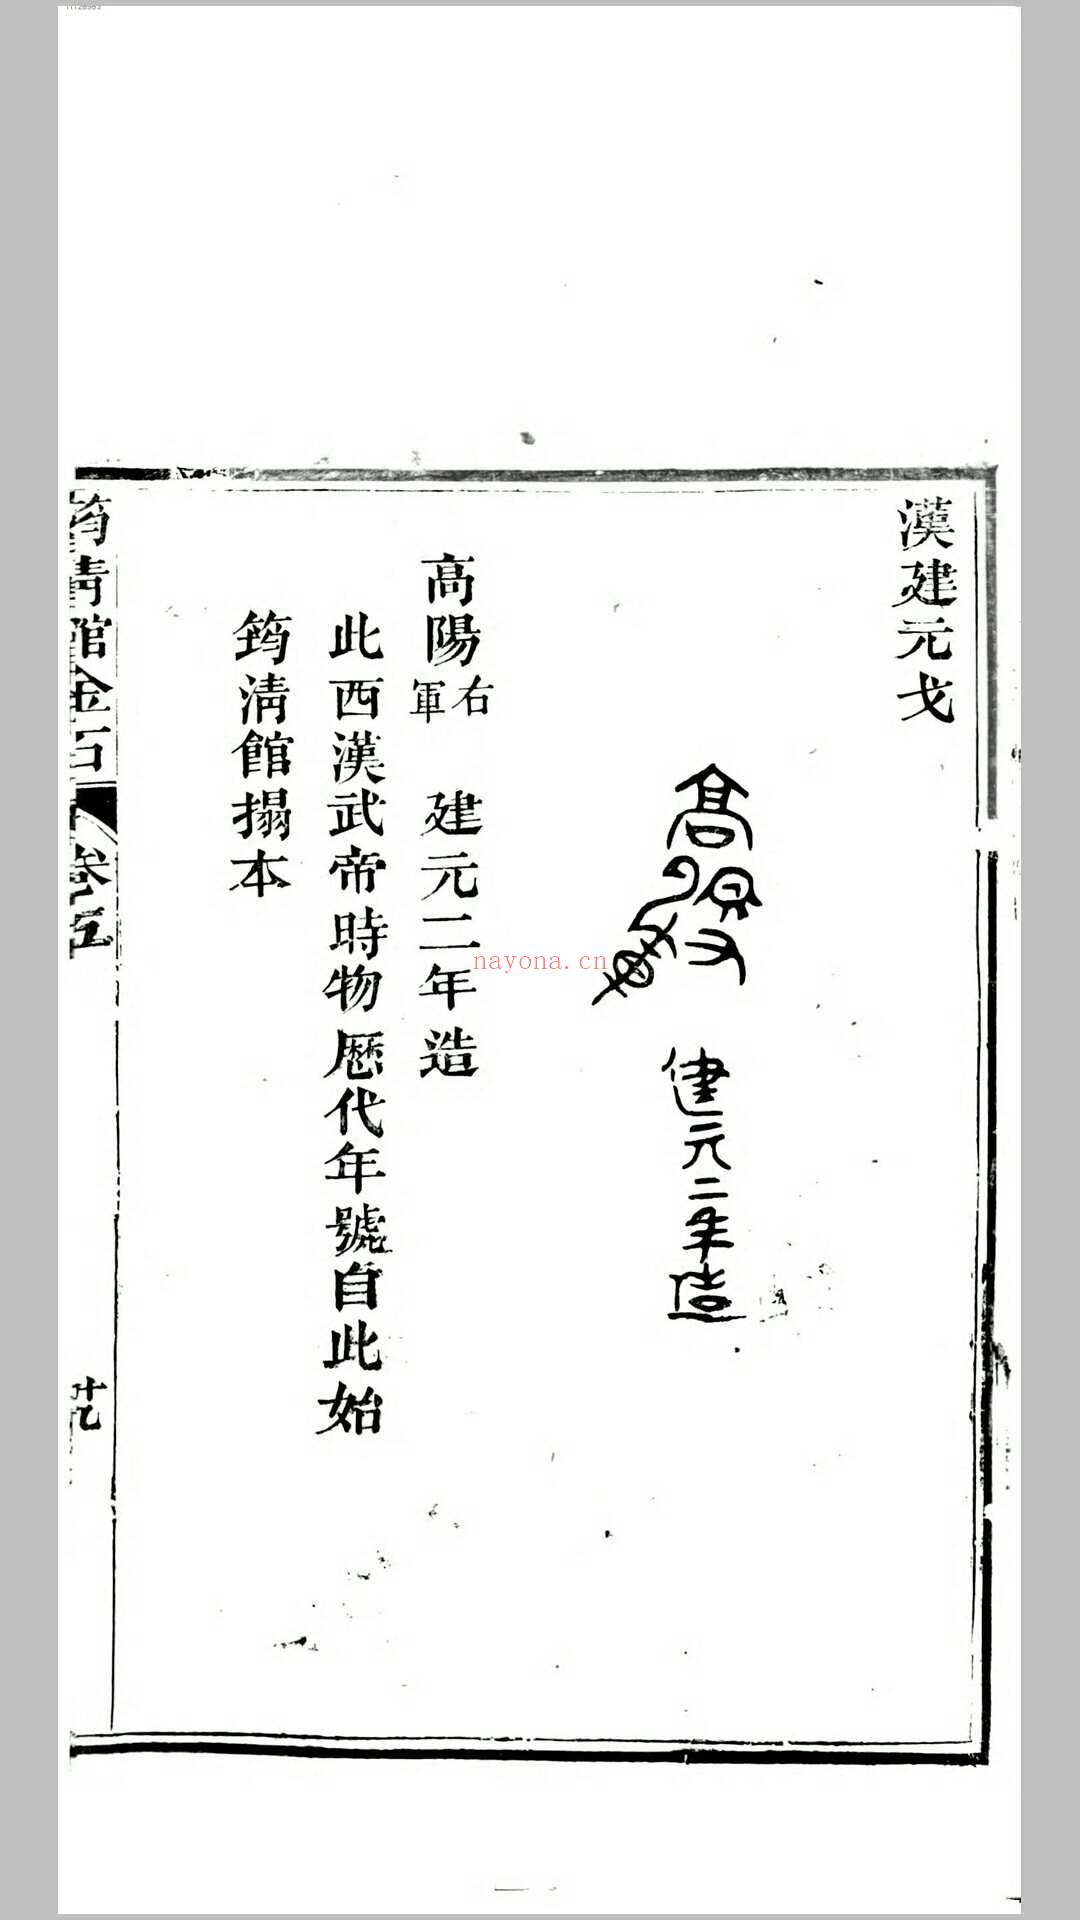 漢建元戈
高陽右軍 建元二年造
高陽右軍 建元二年造
此西漢武帝時物厯代年號自此始
筠清館搨本
筠清館金石 卷五 芘
nayona.cn